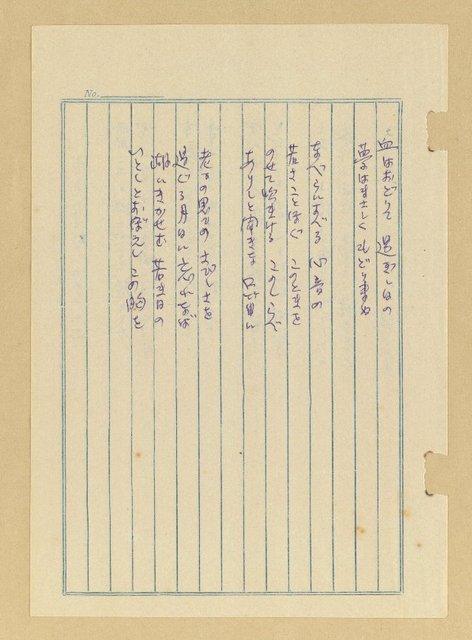 No.
血はおどりて 過ぎし日の
夢はまさしく もどり来ぬ
すべらいすべる 心音の
若さことほぐ このときを
のせて吹きける このしらべ
ありしと聞きな
老うの思ひの さびしさを
過ぐる月日に 忘れなば
湖にきかせむ 若き日の
いとしとおぼえし この胸を